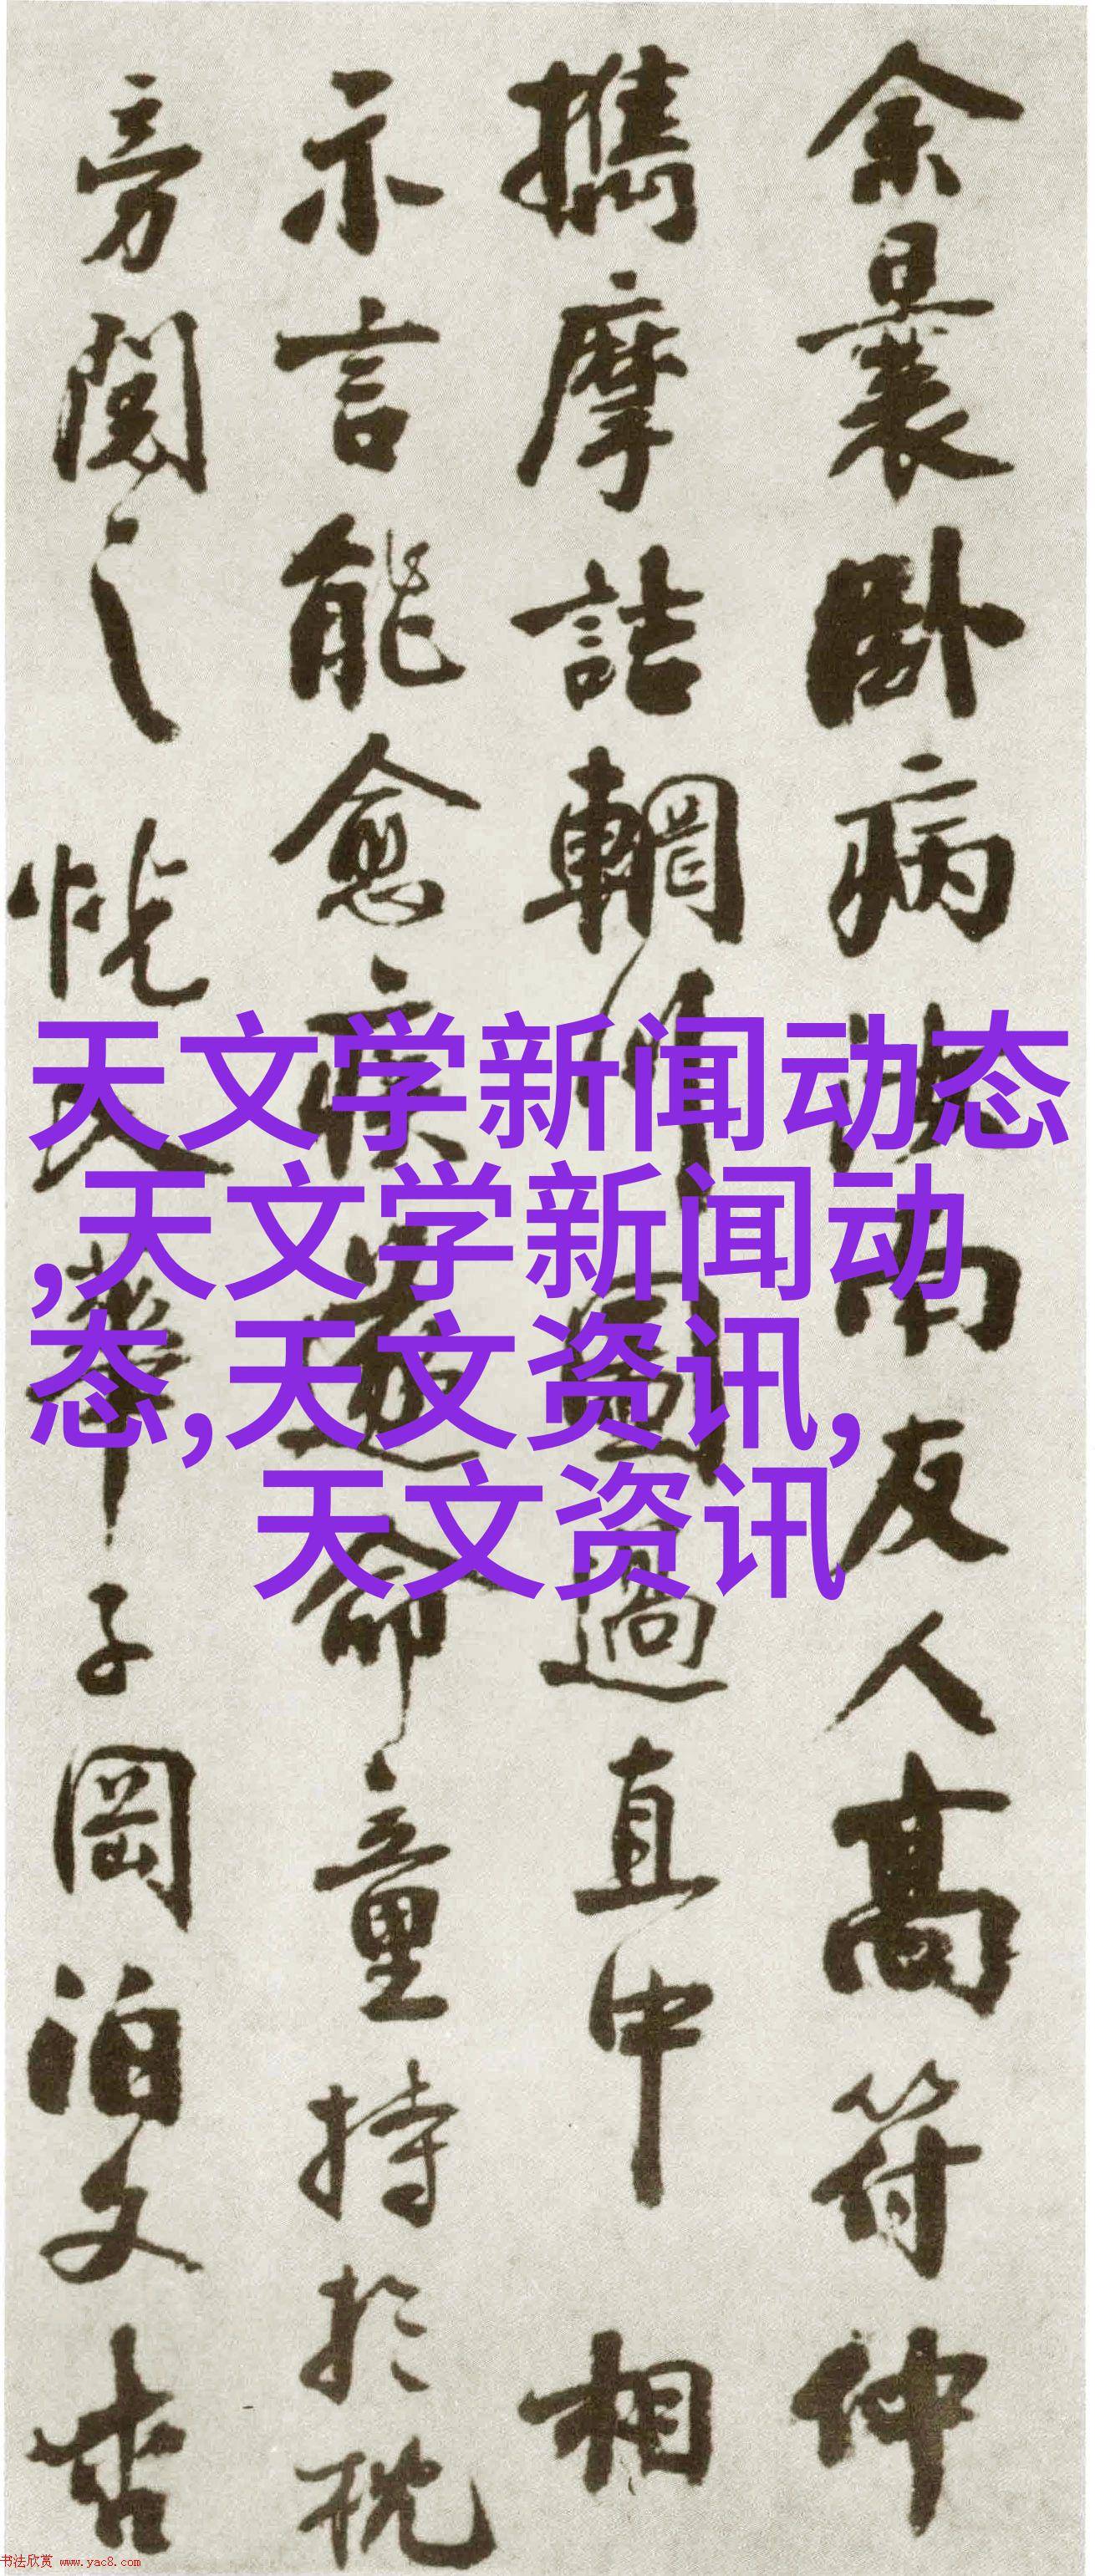 余曩卧病汝南友人高符仲
攜摩詰輞川圖過直中相
示言能愈疾遂命童持於枕
旁閱之恍入華子岡泊文杏
天文学新闻动态
,天文学新闻动
态,天文资讯,
天文资讯
书法欣赏 www.yac8.com